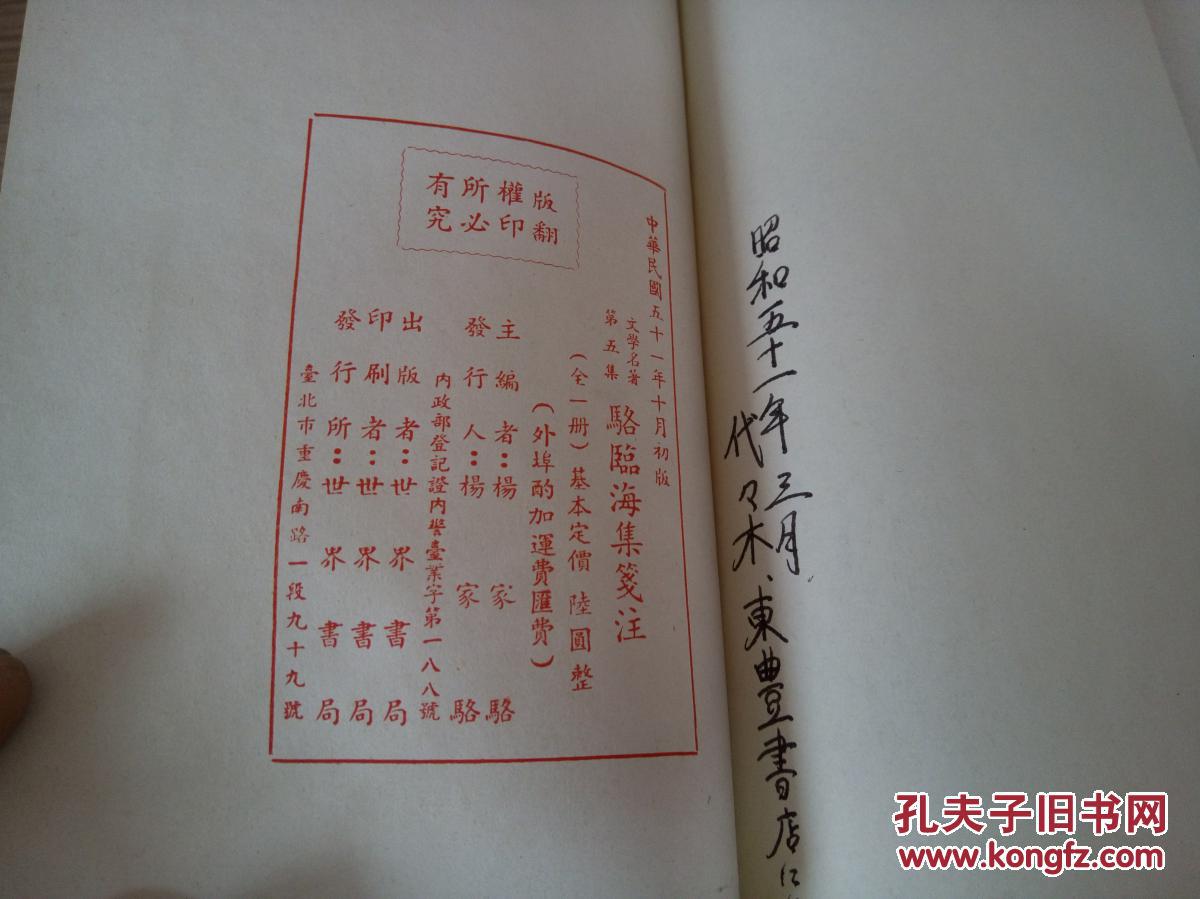 版權所有
翻印必究
中華民國五十一年十月初版
文學名著
第五集
駱臨海集箋注
(全一册)基本定價 陸圓整
(外埠酌加運費匯費)
主編者:楊家駱
發行人:楊家駱
內政部登記證內警臺業字第一八八號
出版者:世界書局
印刷者:世界書局
發行所:世界書局
臺北市重慶南路一段九十九號
昭和五十一年三月
代々木、東豊書店に
孔夫子旧书网
www.kongfz.com